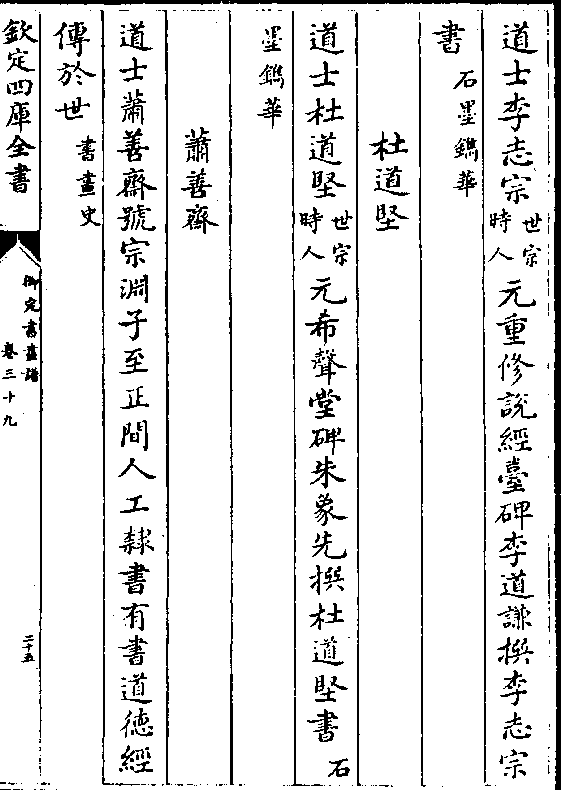 道士李志宗世宗時人元重修說經臺碑李道謙撰李志宗
書石墨鐫華
杜道堅
道士杜道堅世宗時人元希聲堂碑朱象先撰杜道堅書石
墨鐫華
蕭善齋
道士蕭善齋號宗淵子至正間人工隸書有書道德經
傳於世書畫史
欽定四庫全書
御定書畫譜
卷三十九
二十五